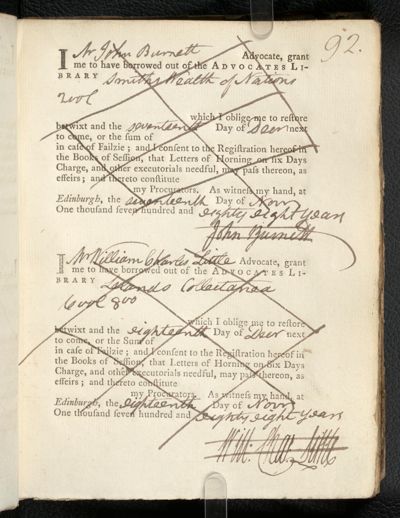 92.
I Mr John Burnett Advocate, grant
me to have borrowed out of the ADVOCATES LI-
BRARY Smiths Wealth of Nations
2 vol
which I oblige me to restore
betwixt and the seventeenth Day of Decr next
to come, or the sum of
in case of Failzie; and I consent to the Registration hereof in
the Books of Session, that Letters of Horning on six Days
Charge, and other executorials needful, may pass thereon, as
effeirs; and thereto constitute
my Procurators. As witness my hand, at
Edinburgh, the seventeenth Day of Novr
One thousand seven hundred and eighty eight years
John Burnett
I Mr William Charles Little Advocate, grant
me to have borrowed out of the ADVOCATES LI-
BRARY Lelands Collectanea
6 vol 8vo
which I oblige me to restore
betwixt and the eighteenth Day of Decr next
to come, or the Sum of
in case of Failzie; and I consent to the Registration hereof in
the Books of Session, that Letters of Horning on six Days
Charge, and other executorials needful, may pass thereon, as
effeirs; and thereto constitute
my Procurators. As witness my hand, at
Edinburgh, the eighteenth Day of Novr
One thousand seven hundred and eighty eight years
Will: Cha: Little